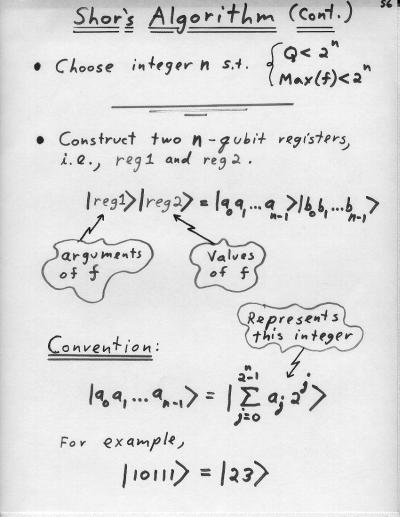 56
Shor's Algorithm (Cont.)
• Choose integer n s.t. { Q < 2^n
Max(f) < 2^n
• Construct two n-qubit registers,
i.e., reg1 and reg2.
|reg1⟩|reg2⟩ = |a_0 a_1 ... a_{n-1}⟩|b_0 b_1 ... b_{n-1}⟩
arguments
of f
Values
of f
Represents
this integer
Convention:
|a_0 a_1 ... a_{n-1}⟩ = |∑_{j=0}^{2^n-1} a_j 2^j⟩
For example,
|10111⟩ = |23⟩